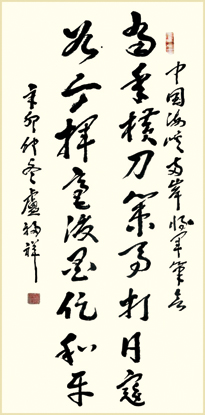 中国海峡两岸将军笔会
当年横刀策马打日寇
今挥毫泼墨促和平
辛卯仲冬 盧 祥